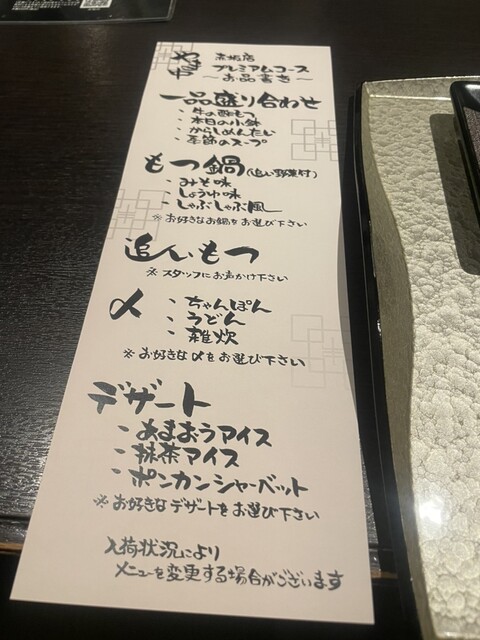 やまや 赤坂店
プレミアムコース
～お品書き～
一品盛り合わせ
・牛の酢もつ
・本日の小鉢
・からしめんたい
・季節のスープ
もつ鍋(追い野菜付)
・みそ味
・しょうゆ味
・しゃぶしゃぶ風
※お好きなお鍋をお選び下さい
追いもつ
※スタッフにお声かけ下さい
〆 ・ちゃんぽん
・うどん
・雑炊
※お好きな〆をお選び下さい
デザート
・あまおうアイス
・抹茶アイス
・ポンカンシャーベット
※お好きなデザートをお選び下さい
入荷状況により
メニューを変更する場合がございます